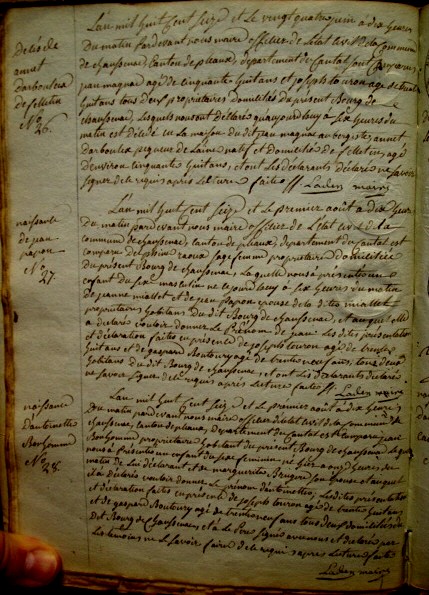 Lan mil huit sent seize et le vingt quatre juin à dix heures
du matin pardevant nous maire officier de Letat civil de la Commune
de chaussenac, Canton de pleaux, département du Cantal sont Comparus
jean magnac agé de Cinquante huit ans et joseph touron agé de trente
huit ans tous deux propriétaires domiciliés du présent Bourg de
chaussenac, lesquels nous ont déclaré quaujourdhuy à six heures du
matin est décédé en La maison du dit jean magnac aubergiste, annet
darboulia peigneur de Laine natif et domicilié de felletin agé
d'environ cinquante huit ans, et ont les déclarants déclaré ne savoir
signer de ce requis après Lecture faite
Décès de
annet
darboulia
de felletin
No
26.
Lan mil huit sent seize et Le premier août à dix heures
du matin pardevant nous maire officier de Letat civil de la
commune de chaussenac, canton de pleaux, département du Cantal est
comparue raoux sage femme propriétaire domiciliée
du présent Bourg de chaussenac, La quelle nous à présenté un
enfant du sexe masculin né à six heures du matin
de jeanne miallet et de jean papon epouse de la dite miallet
propriétaires habitans du dit Bourg de chaussenac, et auquel elle
a déclaré vouloir donner Le Prénom de jean. Les dites présentation
et déclaration faites en présence de joseph touron agé de trente
huit ans et de gaspard Boutoury agé de trente neuf ans, tous deux
habitans du dit Bourg de chaussenac, et ont Les déclarants déclaré
ne savoir signer de ce requis après Lecture faite
naissance
de jean
papon
No
27.
Lan mil huit sent seize et Le premier août à dix heures
du matin pardevant nous maire officier de letat civil de la Commune de
chaussenac, canton de pleaux, département du Cantal est comparu jean
Bonhomme propriétaire habitant du présent Bourg de chaussenac Lequel
nous à Présenté un enfant du sexe féminin né hier à onze heures du
matin de Lui déclarant et de marguerite Bruger son epouse et auquel
il a déclaré vouloir donner Le prénom d'antoinette, Les dites présentation
et déclaration faites en présence de joseph touron agé de trente huit ans
et de gaspard Boutoury agé de trente neuf ans tous deux domiciliés du
dit Bourg de chaussenac, et à Le Père signé avec nous et déclaré par
Les témoins ne Le savoir faire de ce requis après Lecture faite
naissance
dantoinette
Bonhomme
No
28.